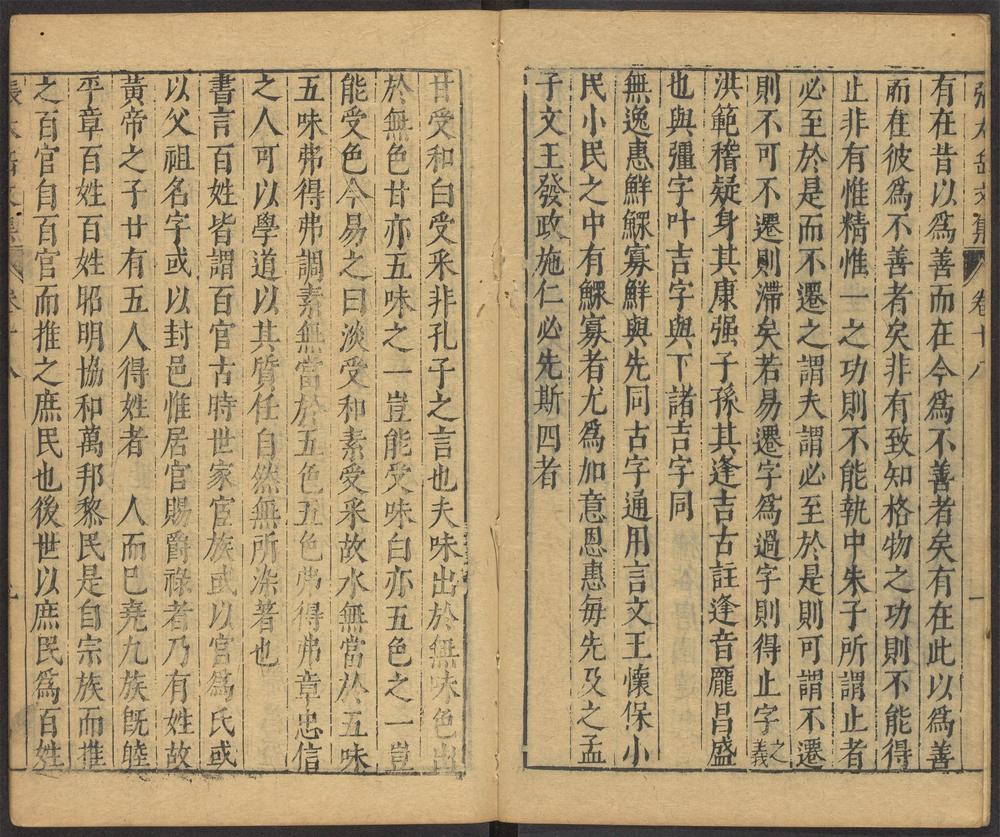 張太岳文集 卷十八 一
有在昔以爲善而在今爲不善者矣有在此以爲善
而在彼爲不善者矣非有致知格物之功則不能得
止非有惟精惟一之功則不能執中朱子所謂止者
必至於是而不遷之謂夫謂必至於是則可謂不遷
則不可不遷則滯矣若易遷字爲過字則得止字之義
洪範稽疑身其康强子孫其逢吉古註逢音龎昌盛
也與彊字叶吉字與下諸吉字同
無逸惠鮮鰥寡鮮與先同古字通用言文王懷保小
民小民之中有鰥寡者尤爲加意恩惠毎先及之孟
子文王發政施仁必先斯四者
甘受和白受采非孔子之言也夫味出於無味色出
於無色甘亦五味之一豈能受味白亦五色之一豈
能受色今易之曰淡受和素受采故水無當於五味
五味弗得弗調素無當於五色五色弗得弗章忠信
之人可以學道以其質任自然無所染著也
書言百姓皆謂百官古時世家宦族或以官爲氏或
以父祖名字或以封邑惟居官賜爵祿者乃有姓故
黃帝之子廿有五人得姓者 人而巳堯九族旣睦
平章百姓百姓昭明協和萬邦黎民是自宗族而推
之百官自百官而推之庶民也後世以庶民爲百姓